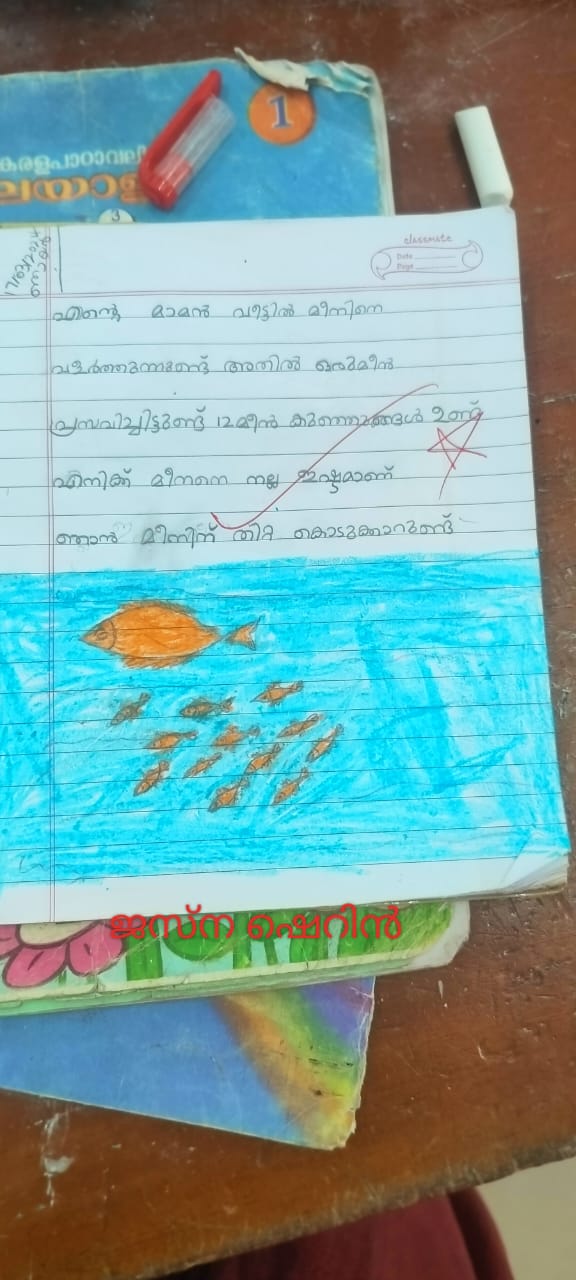 കേരളപാഠാവലി
1
3
classmate
Date
Page
എന്റെ മാമൻ വീട്ടിൽ മീനിനെ
വളർത്തുന്നുണ്ട് അതിൽ ഒരുമീൻ
പ്രസവിച്ചിട്ടുണ്ട് 12 മീൻ കുഞ്ഞുങ്ങൾ ഉണ്ട്
എനിക്ക് മീനനെ നല്ല ഇഷ്ടമാണ്
ഞാൻ മീനിന് തീറ്റ കൊടുക്കാറുണ്ട്
ജസ്ന ഷെറിൻ